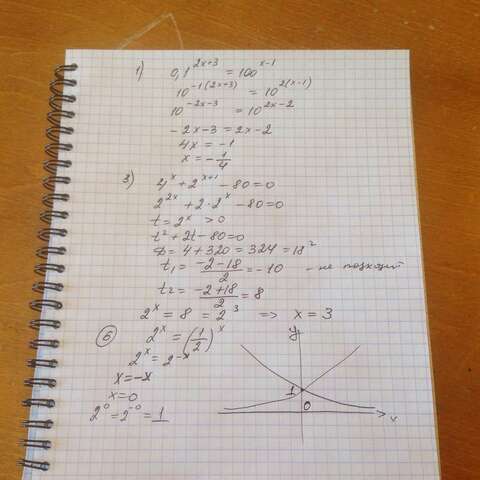 1) 0,1^{2x+3} = 100^{x-1}
10^{-1(2x+3)} = 10^{2(x-1)}
10^{-2x-3} = 10^{2x-2}
-2x-3 = 2x-2
4x = -1
x = -\frac{1}{4}
3) 4^x + 2^{x+1} - 80 = 0
2^{2x} + 2 \cdot 2^x - 80 = 0
t = 2^x > 0
t^2 + 2t - 80 = 0
D = 4 + 320 = 324 = 18^2
t_1 = \frac{-2-18}{2} = -10 - не подходит
t_2 = \frac{-2+18}{2} = 8
2^x = 8 = 2^3 => x = 3
6) 2^x = (\frac{1}{2})^x
2^x = 2^{-x}
x = -x
x = 0
2^0 = 2^{-0} = 1
y
1
0
x